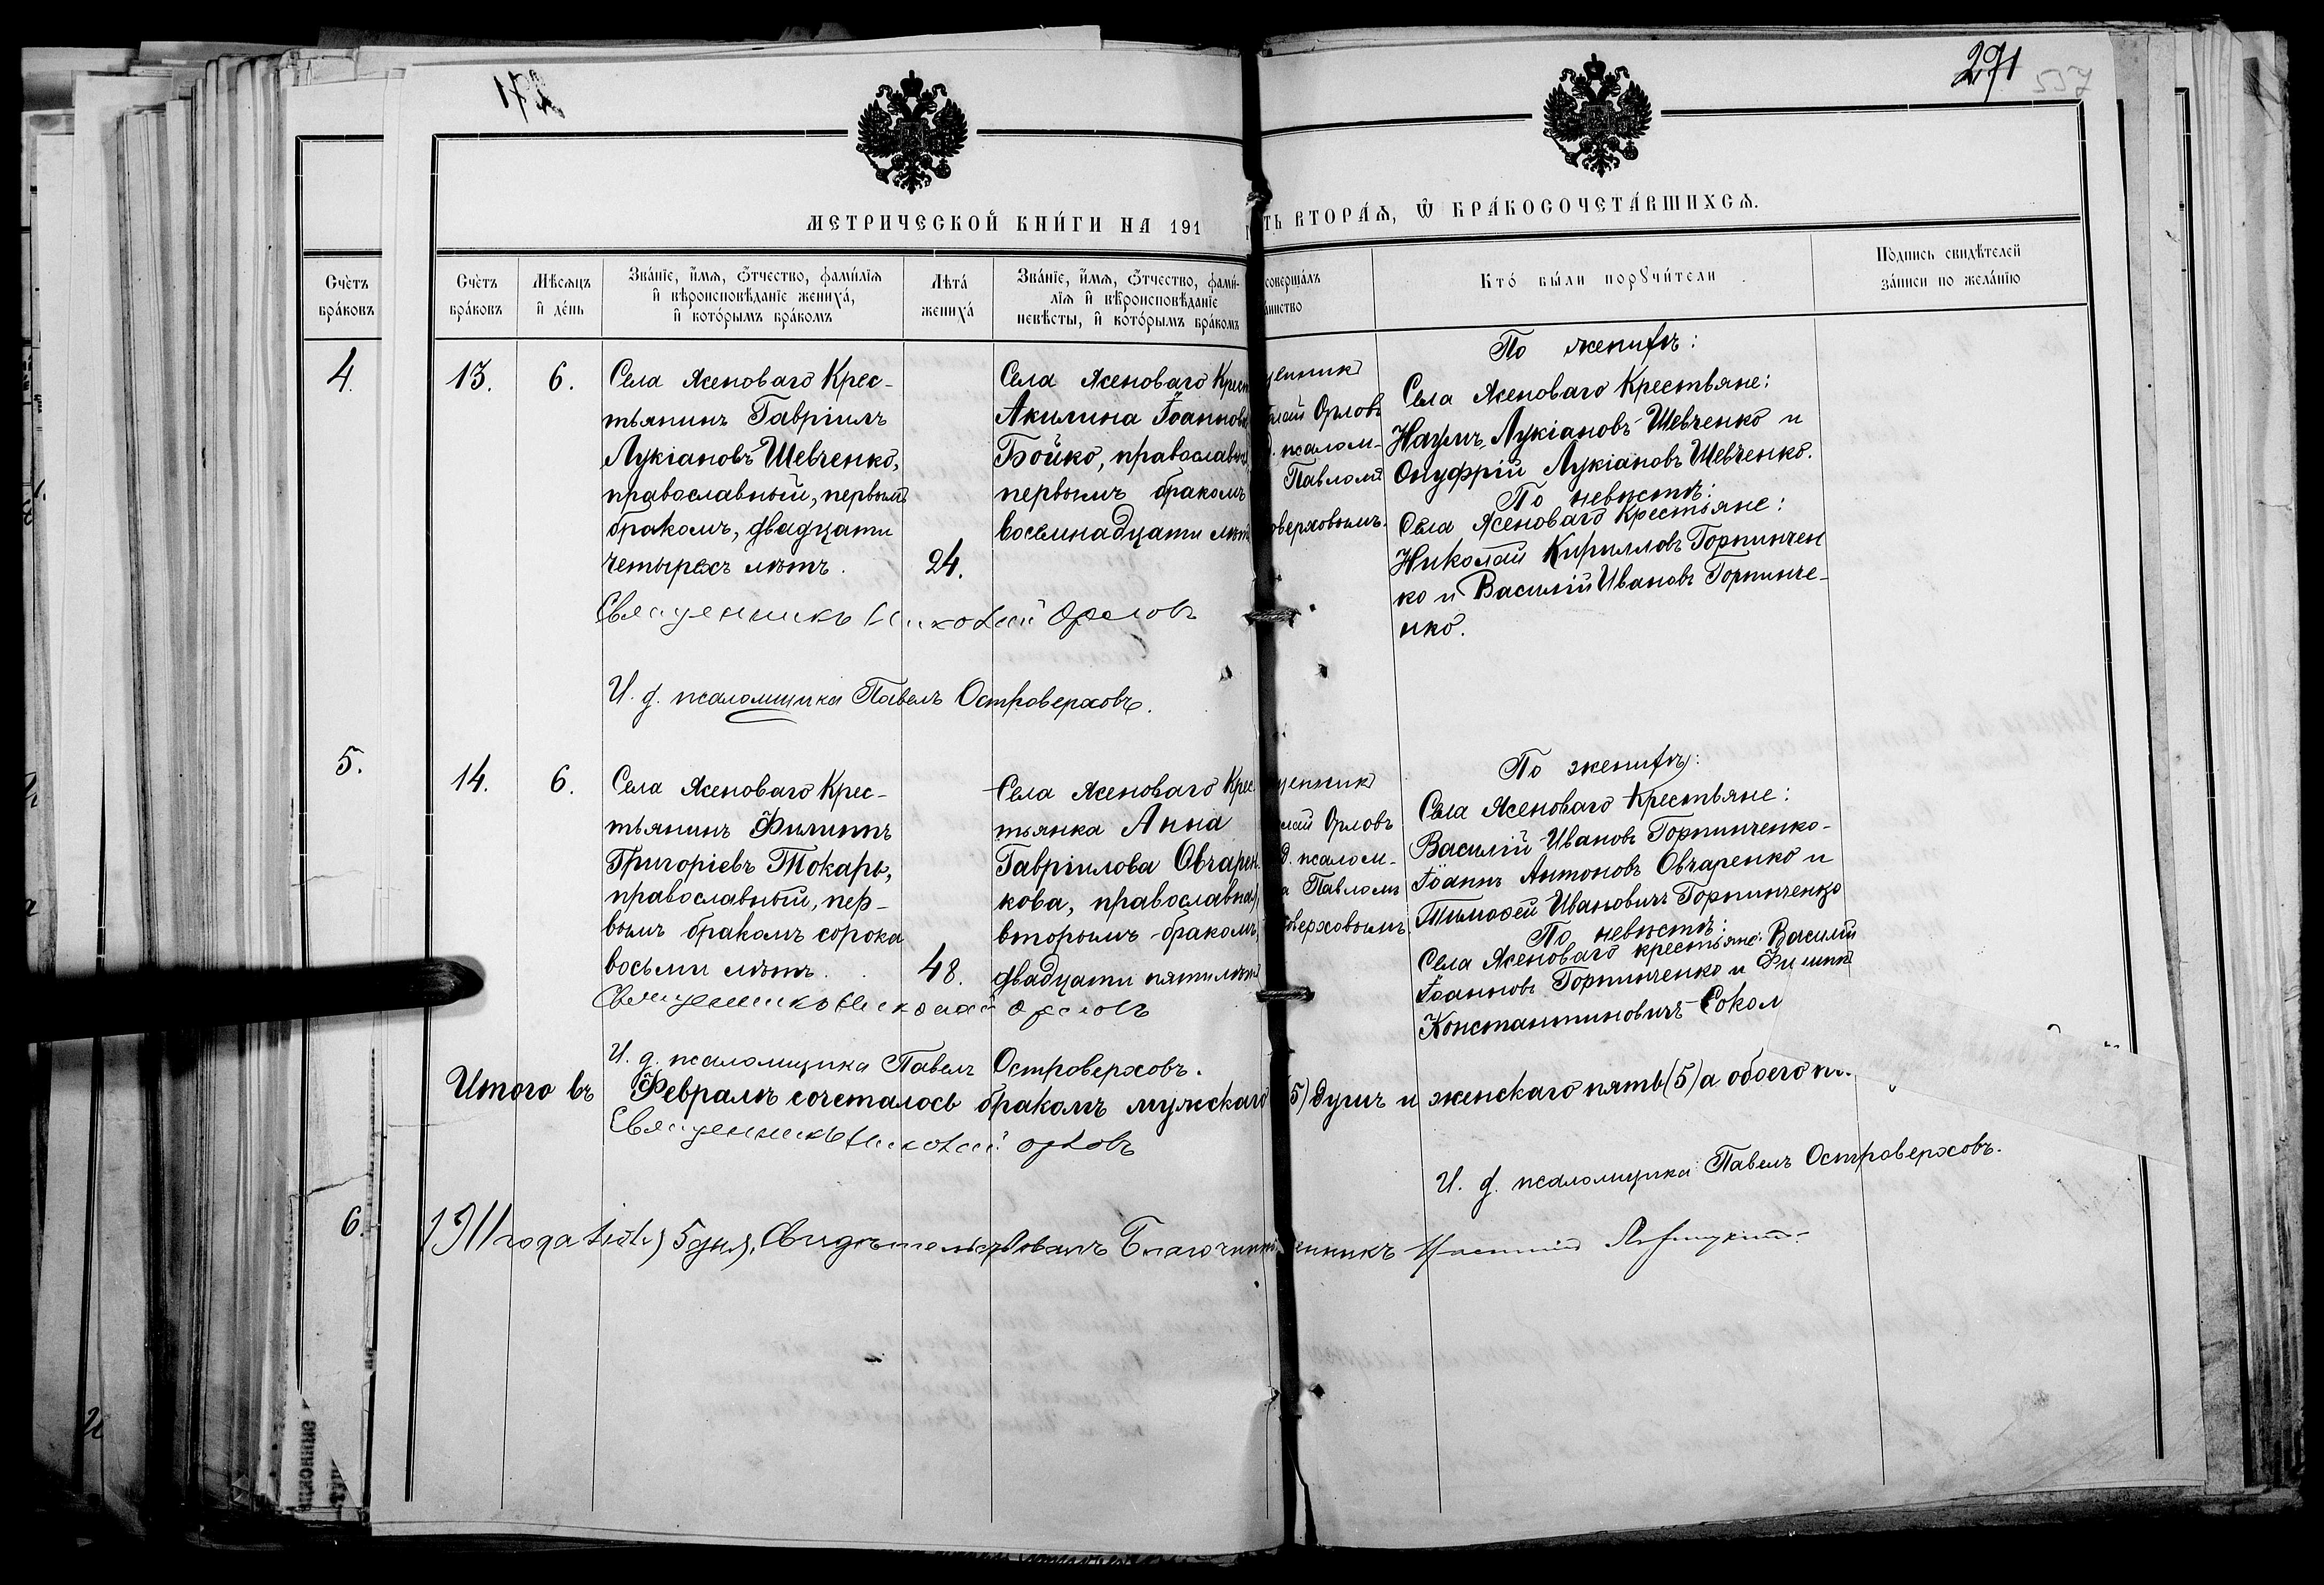 271
557
МЕТРИЧЕСКОЙ КНИ́ГИ НА 191
ТЬ ВТОРА́Ѧ, Ѿ БРА́КОСОЧЕТА́ВШИХСѦ.
Счѐтъ бра́ковъ
Счѐтъ бра́ковъ
Мѣ́сѧцъ и҆ де́нь
Зва́нїе, и҆́мѧ, ѻ҆́тчество, фами́лїѧ и҆ вѣроисповѣ́данїе жениха̀, и҆ кото́рымъ бра́комъ
Лѣта̀ жениха̀
Зва́нїе, и҆́мѧ, ѻ҆́тчество, фами́-
лїѧ и҆ вѣроисповѣ́данїе
невѣ́сты, и҆ кото́рымъ бра́комъ
соверша́лъ
аинство
Кто̀ бы́ли порꙋчи́тели
По́дпись свидѣ́телей за́писи по жела́нїю
4.
13.
6.
Села Ясеноваго Крес-
тьянинъ Гавріилъ
Лукіановъ Шевченко,
православный, первымъ
бракомъ, двадцати
четырехъ лѣтъ.
24.
Села Ясеноваго Крест
Акилина Іоаннова
Бойко, православная,
первымъ бракомъ
восемнадцати лѣтъ
щенникъ
лай Орловъ
д. псалом-
Павломъ
оверховымъ.
По женихѣ:
Села Ясеноваго Крестьяне:
Наумъ Лукіановъ Шевченко и
Онуфрій Лукіановъ Шевченко.
По невѣстѣ:
Села Ясеноваго Крестьяне:
Николай Кирилловъ Горпинчен
ко и Василій Ивановъ Горпинче-
нко.
Священникъ Николай Орловъ
И. д. псаломщика Павелъ Островерховъ.
5.
14.
6.
Села Ясеноваго Крес-
тьянинъ Филиппъ
Григоріевъ Токарь,
православный, пер-
вымъ бракомъ сорока
восьми лѣтъ.
48.
Села Ясеноваго Крес
тьянка Анна
Гавріилова Овчарен
кова, православная,
вторымъ бракомъ,
двадцати пяти лѣтъ
щенникъ
лай Орловъ
д. псалом-
а Павломъ
оверховымъ
По женихѣ:
Села Ясеноваго Крестьяне:
Василій Ивановъ Горпинченко-
Іоаннъ Антоновъ Овчаренко и
Тимофей Ивановичъ Горпинченко
По невѣстѣ:
Села Ясеноваго крестьяне: Василій
Іоанновъ Горпинченко и Филиппъ
Константиновичъ Сокол
Священникъ Николай Орловъ
И. д. псаломщика Павелъ Островерховъ.
Итого въ Февралѣ сочеталось бракомъ мужскаго (5) душъ и женскаго пять (5) а обоего
Священникъ Николай Орловъ
И. д. псаломщика Павелъ Островерховъ.
6.
1911 года Іюля 5 дня, Свидѣтельствовалъ Благочинный
енникъ